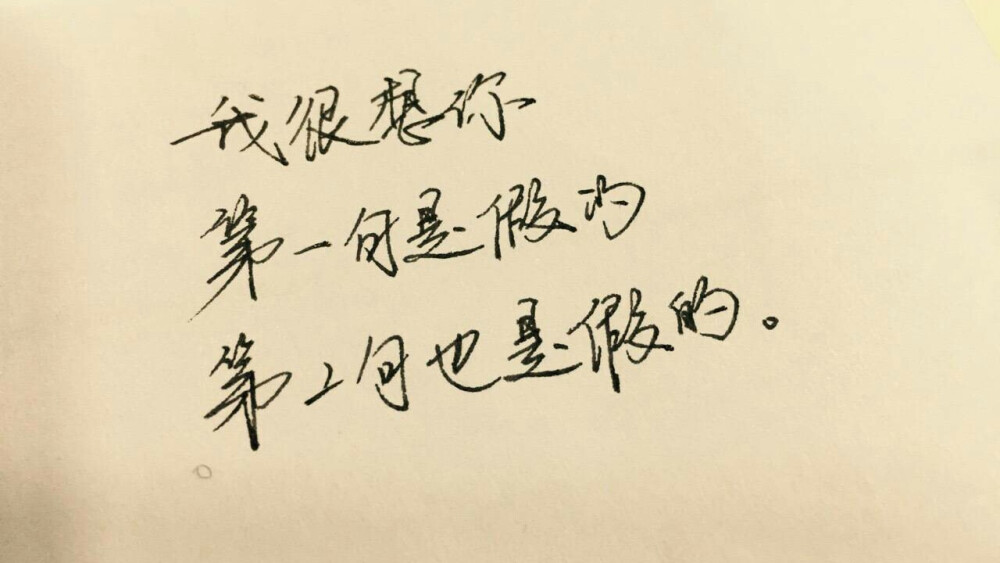 我很想你
第一句是假的
第二句也是假的。